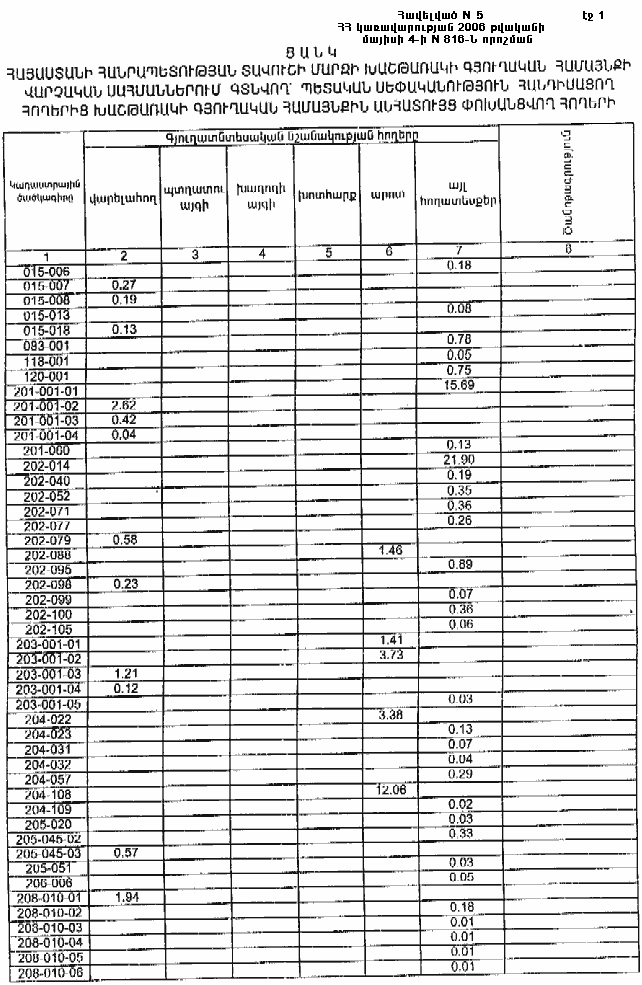 Հավելված N 5 էջ 1
ՀՀ կառավարության 2006 թվականի
մայիսի 4-ի N 816-Ն որոշման
Ց Ա Ն Կ
ՀԱՅԱՍՏԱՆԻ ՀԱՆՐԱՊԵՏՈՒԹՅԱՆ ՏԱՎՈՒՇԻ ՄԱՐԶԻ ԽԱՇԹԱՌԱԿԻ ԳՅՈՒՂԱԿԱՆ ՀԱՄԱՅՆՔԻ
ՎԱՐՉԱԿԱՆ ՍԱՀՄԱՆՆԵՐՈՒՄ ԳՏՆՎՈՂ՝ ՊԵՏԱԿԱՆ ՍԵՓԱԿԱՆՈՒԹՅՈՒՆ ՀԱՆԴԻՍԱՑՈՂ
ՀՈՂԵՐԻՑ ԽԱՇԹԱՌԱԿԻ ԳՅՈՒՂԱԿԱՆ ՀԱՄԱՅՆՔԻՆ ԱՆՀԱՏՈՒՅՑ ՓՈԽԱՆՑՎՈՂ ՀՈՂԵՐԻ
Գյուղատնտեսական նշանակության հողերը
Կադաստրային ծածկագիրը վարելահող պտղատու այգի խաղողի այգի խոտհարք արոտ այլ հողատեսքեր Ծանոթագրություն
1 2 3 4 5 6 7 8
015-006 0.18
015-007 0.27
015-008 0.19
015-013 0.08
015-018 0.13
083-001 0.78
118-001 0.05
120-001 0.75
201-001-01 15.69
201-001-02 2.62
201-001-03 0.42
201-001-04 0.04
201-060 0.13
202-014 21.90
202-040 0.19
202-052 0.35
202-071 0.36
202-077 0.26
202-079 0.58
202-088 1.46
202-095 0.89
202-098 0.23
202-099 0.07
202-100 0.36
202-105 0.06
203-001-01 1.41
203-001-02 3.73
203-001-03 1.21
203-001-04 0.12
203-001-05 0.03
204-022 3.38
204-023 0.13
204-031 0.07
204-032 0.04
204-057 0.29
204-108 12.06
204-109 0.02
205-020 0.03
205-045-02 0.33
205-045-03 0.57
205-051 0.03
206-006 0.05
208-010-01 1.94
208-010-02 0.18
208-010-03 0.01
208-010-04 0.01
208-010-05 0.01
208-010-06 0.01